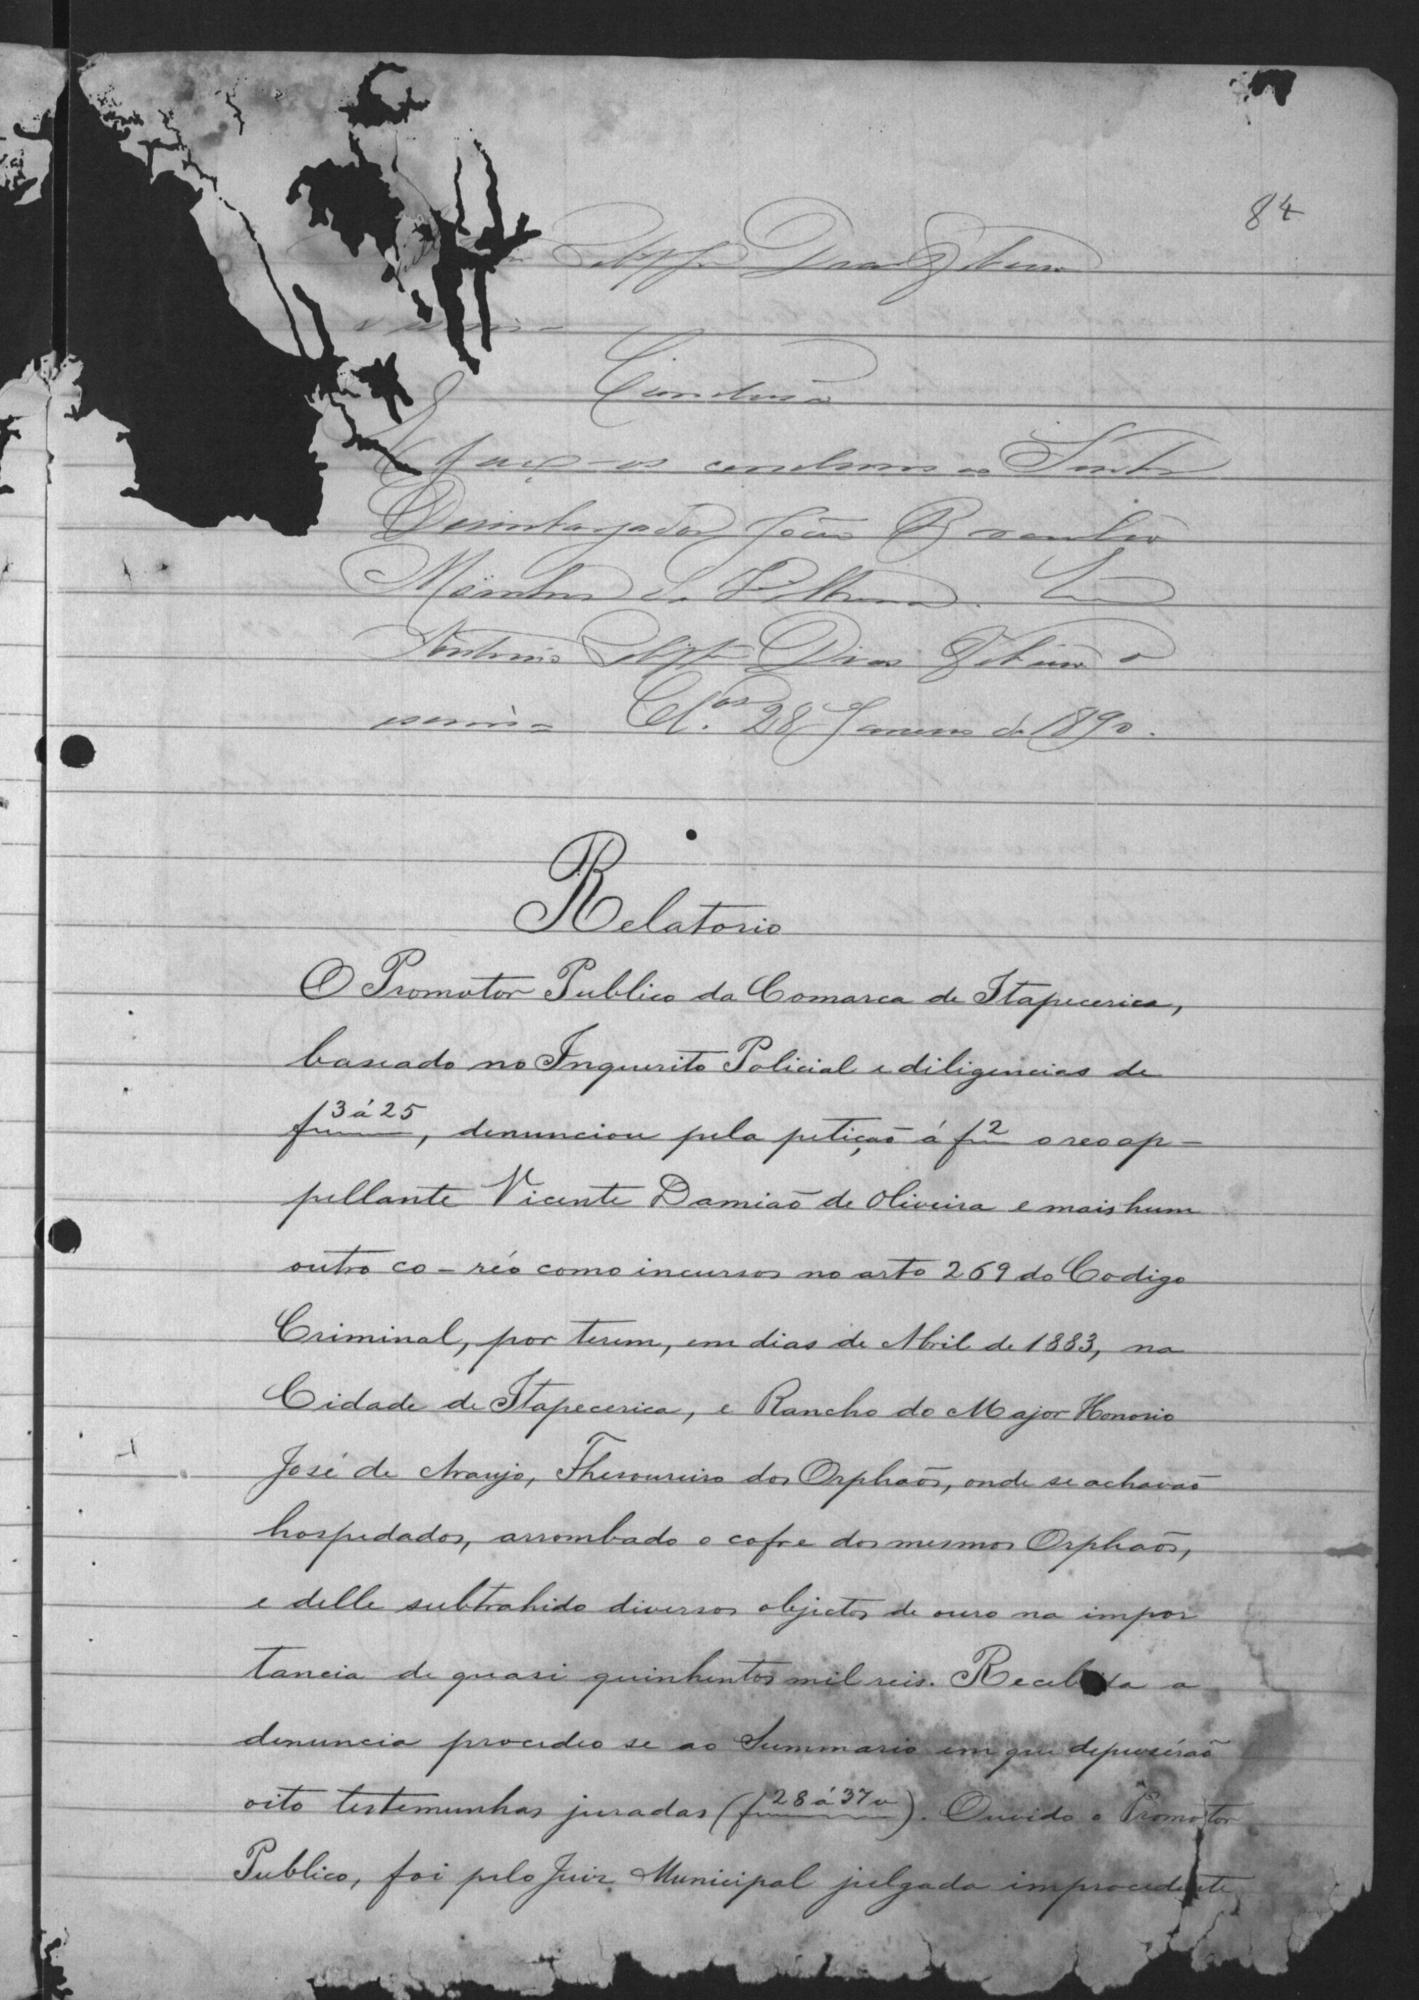 84
Felippe Dias Ribeiro
escrivão
Conclusão
E faço-os conclusos ao Senhor
Desembargador João Braulio
Moinhos de Vilhena. Eu
Antonio Felippe Dias Ribeiro o
escrivão Cl.os 28 Janeiro de 1890.
Relatorio
O Promotor Publico da Comarca de Itapecerica,
baseado no Inquerito Policial e diligencias de
f 3 á 25, denunciou pela petição á f 2 o reo ap-
pellante Vicente Damião de Oliveira e mais hum
outro co-réo como incursos no arto 269 do Codigo
Criminal, por terem, em dias de Abril de 1883, na
Cidade de Itapecerica, e Rancho do Major Honorio
José de Araujo, Thesoureiro dos Orphaõs, onde se achavaõ
hospedados, arrombado o cofre dos mesmos Orphaõs,
e delle subtrahido diversos objectos de ouro na impor
tancia de quasi quinhentos mil reis. Recebida a
denuncia procedeo se ao Summario em que depuseraõ
oito testemunhas juradas (f 28 á 37 v). Ouvido o Promotor
Publico, foi pelo Juiz Municipal julgada improcedente